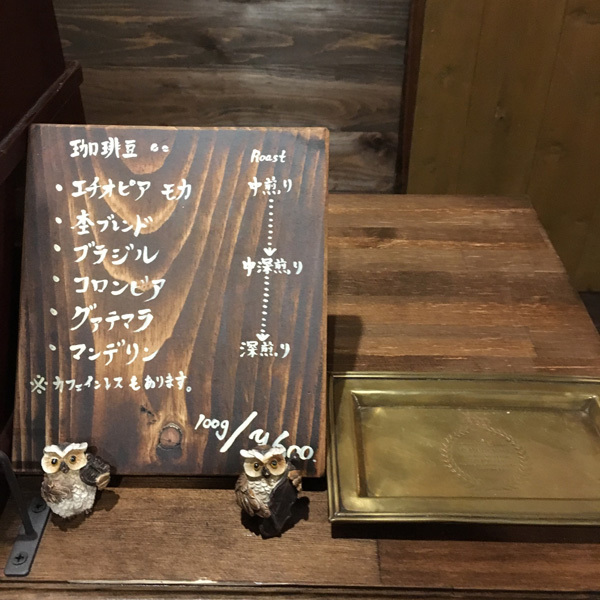 珈琲豆 Roast
・エチオピア モカ 中煎り
・杢ブレンド
・ブラジル
中深煎り
・コロンビア
・グァテマラ
・マンデリン 深煎り
※カフェインレスもあります。
100g/¥600